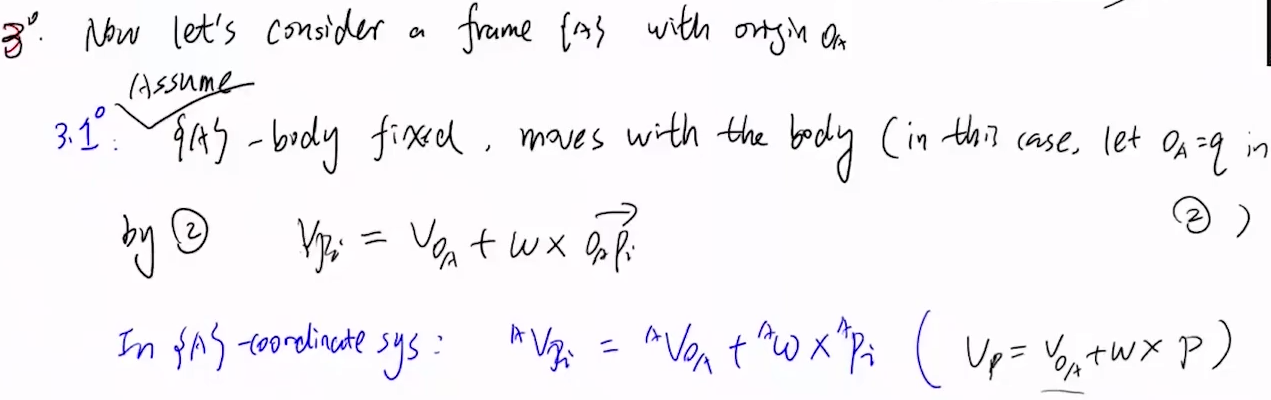 3°. Now let's consider a frame {A} with origin O_A
Assume
3.1°: {A} - body fixed, moves with the body (in this case, let O_A = q in ②)
by ② V_{p_i} = V_{O_A} + ω × \overrightarrow{O_A p_i}
In {A}-coordinate sys: ^A V_{p_i} = ^A V_{O_A} + ^A ω × ^A p_i ( V_p = V_{O_A} + ω × p )